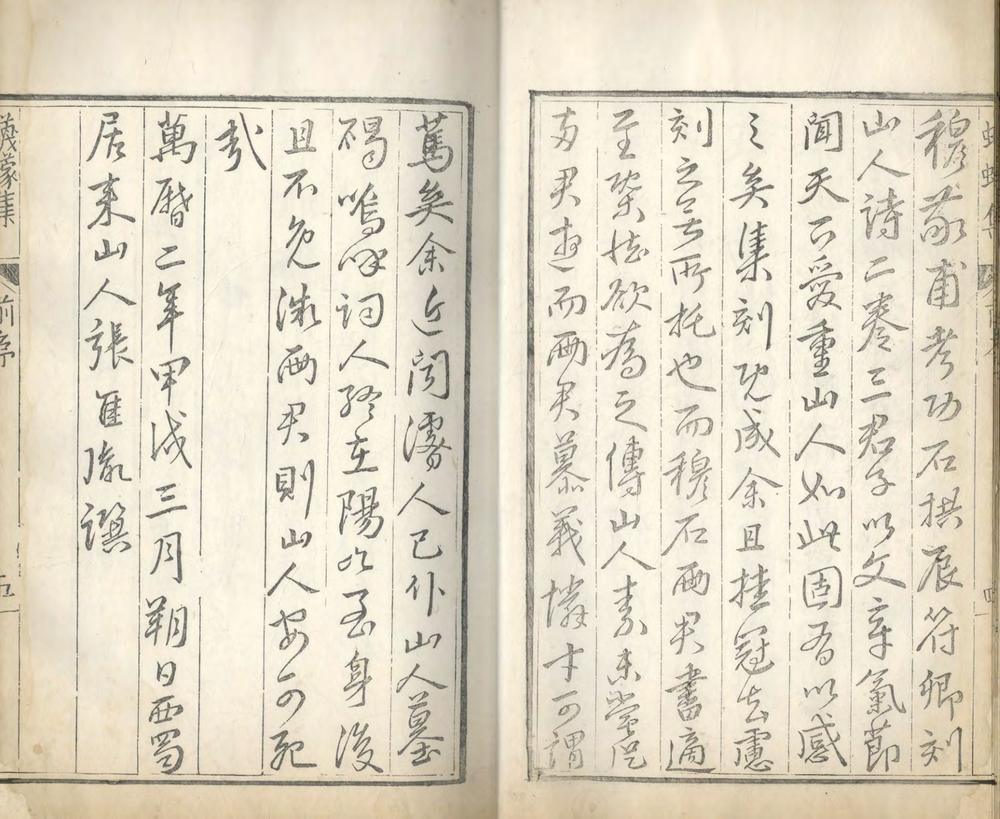 穆敬甫考功石拱辰符卿刻
山人詩二卷三君子以文章氣節
聞天下愛重山人如此固有以感
之矣集刻既成余且挂冠去慮
刻之無所托也而穆石兩君書適
至欲為之傳山人素未嘗從
兩君遊而兩君慕義憐才可謂
篤矣余近聞濬人已仆山人墓
碣嗚呼詞人終在陽九至身後
且不免微兩君則山人安可死
哉
萬曆二年甲戌三月朔日西蜀
居来山人張佳胤譔
蠛蠓集 前序 五